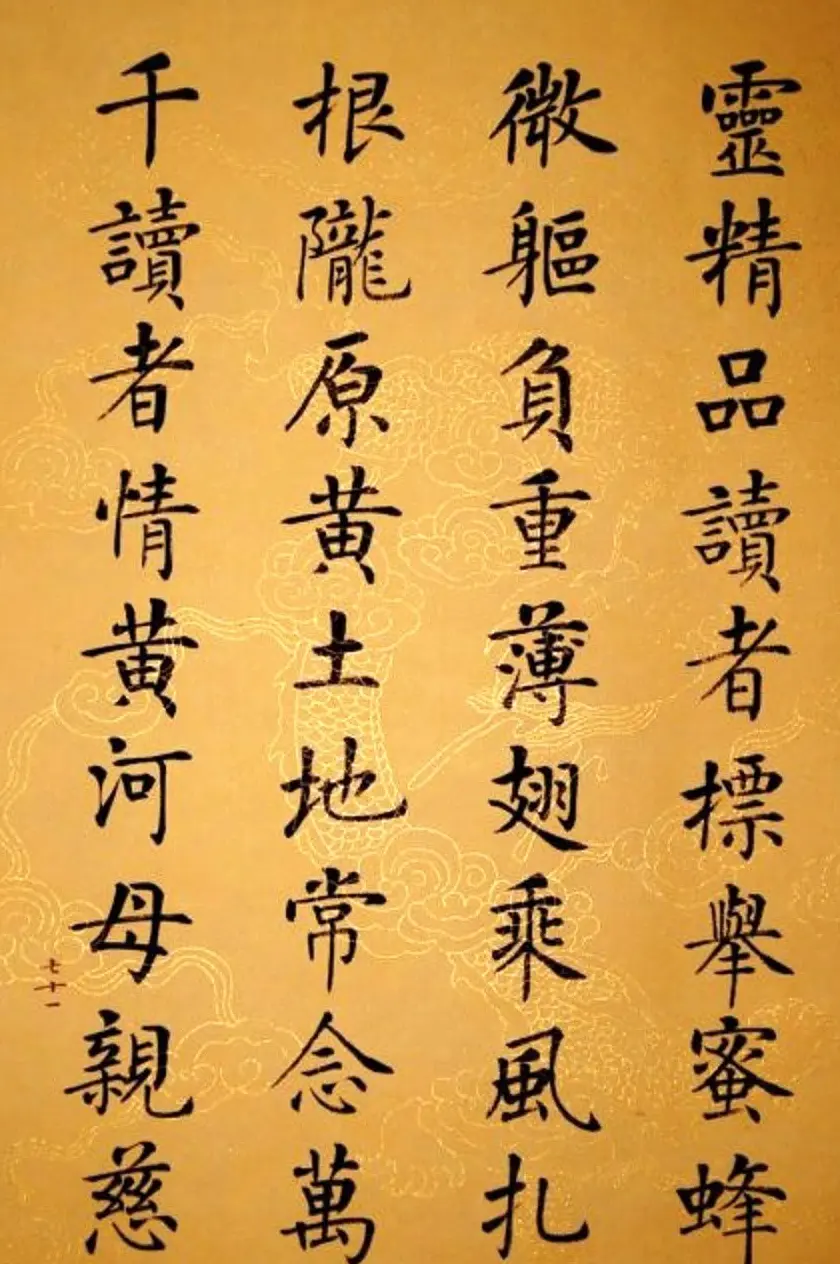 靈精品讀者標舉蜜蜂
微軀負重薄翅乘風扎
根隴原黃土地常念萬
千讀者情黃河母親慈
七十一